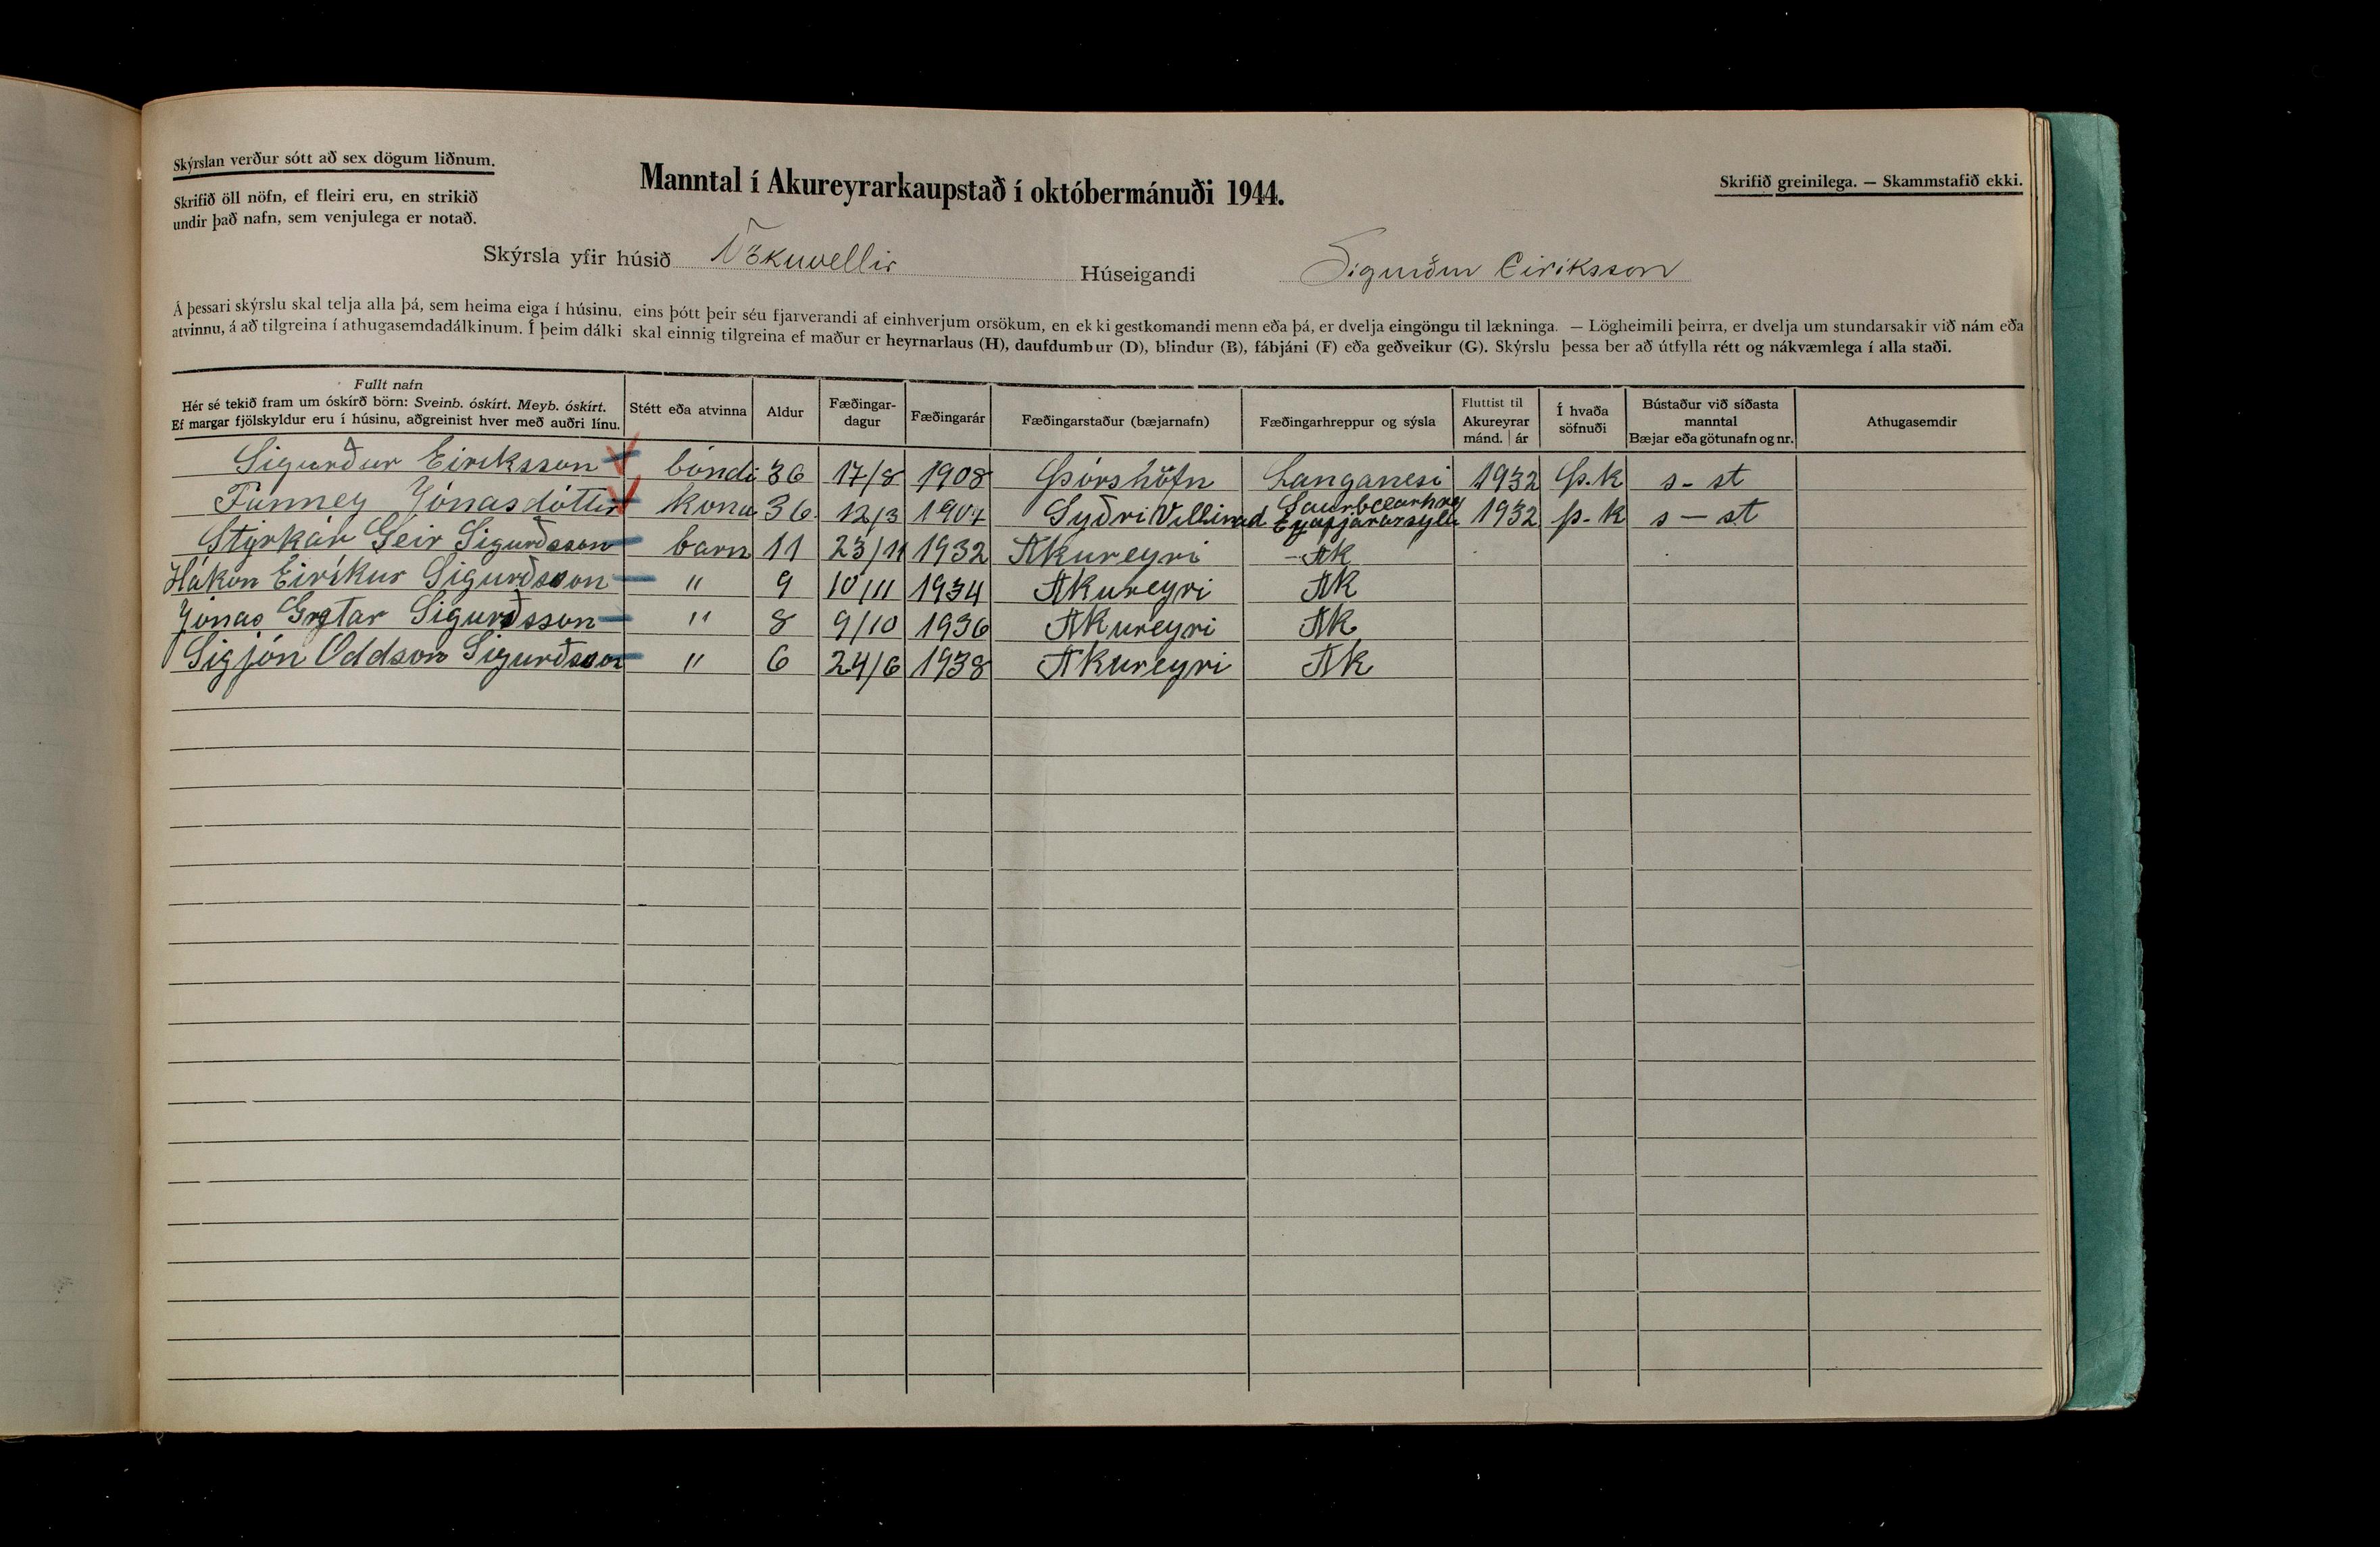 Skýrslan verður sótt að sex dögum liðnum.
Skrifið öll nöfn, ef fleiri eru, en strikið
undir það nafn, sem venjulega er notað.
Manntal í Akureyrarkaupstað í októbermánuði 1944.
Skrifið greinilega. — Skammstafið ekki.
Skýrsla yfir húsið Vökuvellir Húseigandi Sigurður Eiríksson
Á þessari skýrslu skal telja alla þá, sem heima eiga í húsinu, eins þótt þeir séu fjarverandi af einhverjum orsökum, en ekki gestkomandi menn eða þá, er dvelja eingöngu til lækninga. — Lögheimili þeirra, er dvelja um stundarsakir við nám eða
atvinnu, á að tilgreina í athugasemdadálkinum. Í þeim dálki skal einnig tilgreina ef maður er heyrnarlaus (H), daufdumbur (D), blindur (B), fábjáni (F) eða geðveikur (G). Skýrslu þessa ber að útfylla rétt og nákvæmlega í alla staði.
Fullt nafn
Hér sé tekið fram um óskírð börn: Sveinb. óskírt. Meyb. óskírt.
Ef margar fjölskyldur eru í húsinu, aðgreinist hver með auðri línu.
Stétt eða atvinna
Aldur
Fæðingar-
dagur
Fæðingarár
Fæðingarstaður (bæjarnafn)
Fæðingarhreppur og sýsla
Fluttist til
Akureyrar
mánd. | ár
Í hvaða
söfnuði
Bústaður við síðasta
manntal
Bæjar eða götunafn og nr.
Athugasemdir
Sigurður Eiriksson bóndi 36 17/8 1908 Þórshöfn Langanesi 1932 Þ.k s - st
Funney Jónasdóttir kona 36 12/3 Syðri Saurbæarhre Eyafjararsyla 1932 þ-k s — st
Styrkár Geir Sigurðsson barn 11 23/11 1932 Akureyri Ak
Hákon Eiríkur Sigurðsson " 9 10/11 1934 Akureyri Ak
Jónas Grétar Sigurðsson " 8 9/10 1936 Akureyri Ak
Sigjón Oddson Sigurðsson " 6 24/6 1938 Akureyri Ak